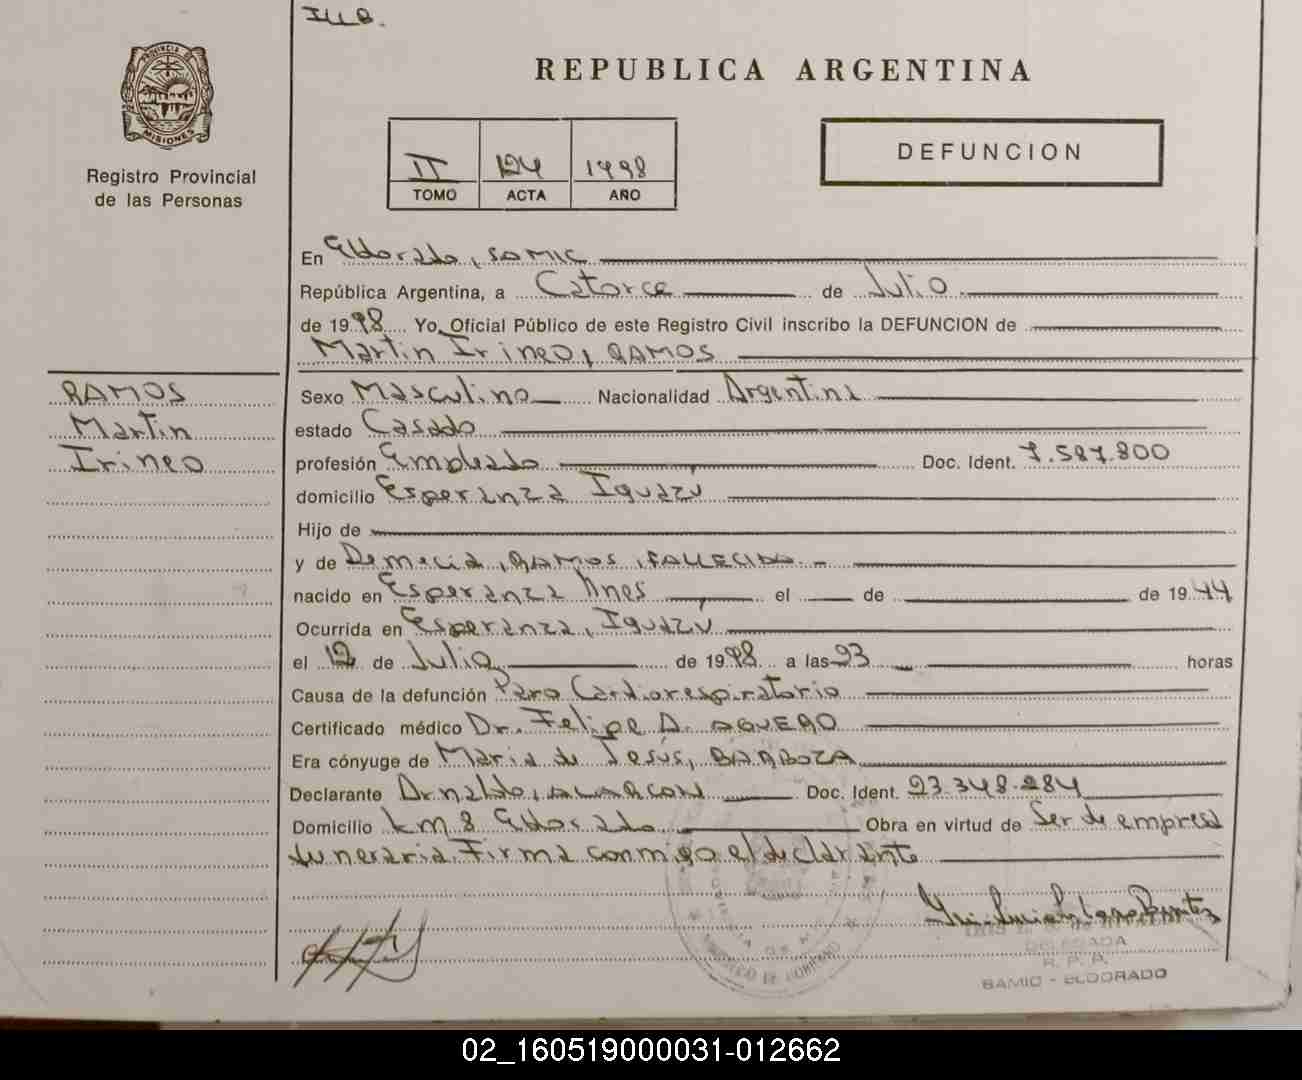 REPUBLICA ARGENTINA
PROVINCIA DE
MISIONES
Registro Provincial
de las Personas
II 124 1998
TOMO ACTA AÑO
DEFUNCION
En Eldorado, SAMIC
República Argentina, a Catorce de Julio
de 1998 Yo, Oficial Público de este Registro Civil inscribo la DEFUNCION de
Martin Irineo, RAMOS
RAMOS
Martin
Irineo
Sexo Masculino Nacionalidad Argentina
estado Casado
profesión Empleado Doc. Ident. 7.587.800
domicilio Esperanza Iguazú
Hijo de
y de Demecia, RAMOS, FALLECIDA.-
nacido en Esperanza el de de 1944
Ocurrida en Esperanza, Iguazú
el 12 de Julio de 1998 a las 23 horas
Causa de la defunción Paro Cardiorespiratorio
Certificado médico Dr. Felipe A. AGUERO
Era cónyuge de Maria de Jesús, BARBOZA
Declarante Arnaldo, ALARCON Doc. Ident. 23.348.284
Domicilio km 8 Eldorado Obra en virtud de Ser de empresa
funeraria. Firma conmigo el declarante
DELEGADA
R. P. P.
SAMIC - ELDORADO
02_160519000031-012662